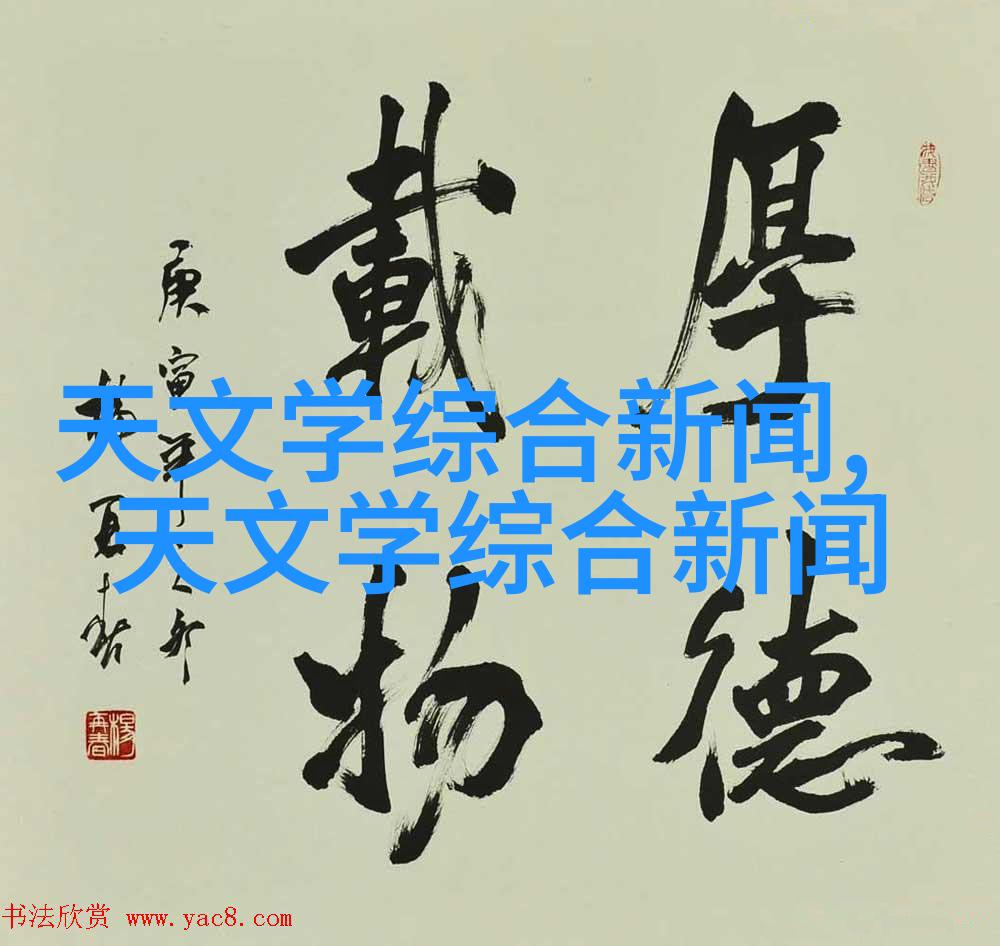 厚德
載物
庚寅
楊再春
天文学综合新闻,
天文学综合新闻
楊再春
书法欣赏 www.yac8.com